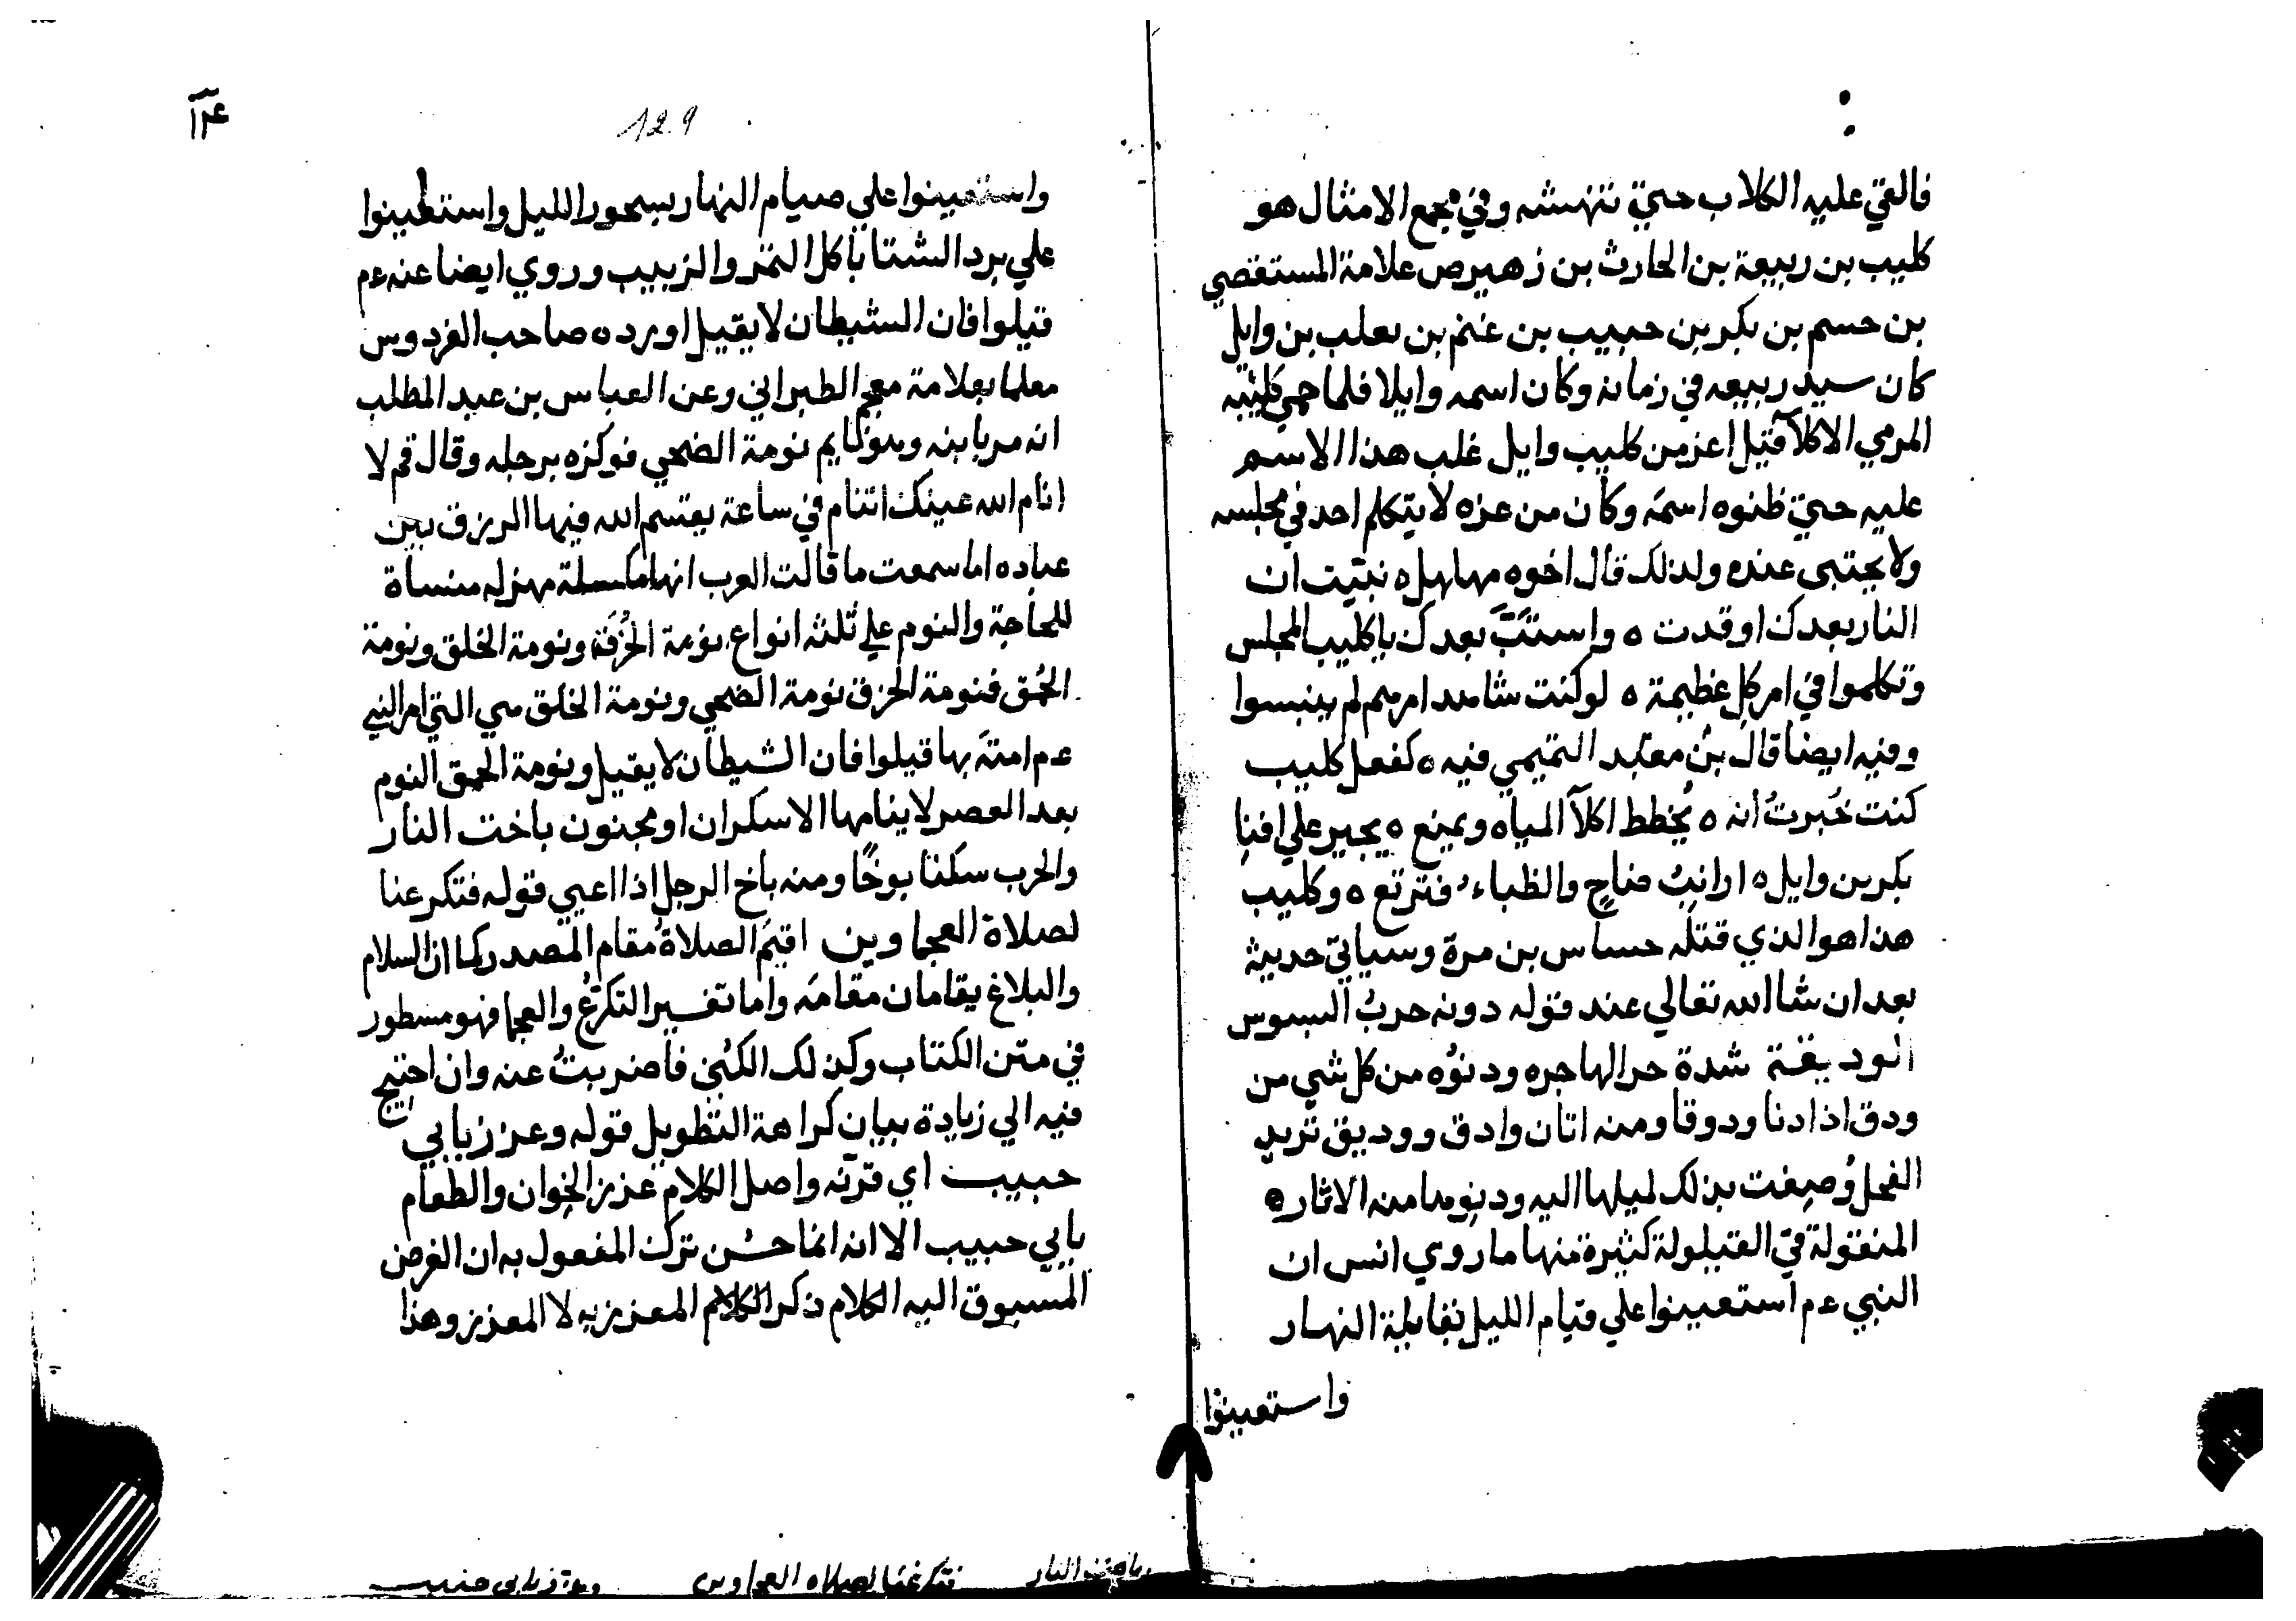 فالقي عليه الكلاب حتي تنهشه وفي مجمع الامثال هو
كليب بن ربيعة بن الحارث بن زهير ص علامة المستقصي
بن حسم بن بكر بن حبيب بن غنم بن بعلب بن وايل
كان سيد ربيعه في زمانه وكان اسمه وايلا فلما حمي كليبه
المرمي الاكلأ قيل اعز من كليب وايل غلب هذا الاسم
عليه حتي ظنوه اسمه وكان من عزه لا يتكلم احد في مجلسه
ولا يحتبى عنده ولذلك قال اخوه مهلهل ه نبيت ان
النار بعدك اوقدت ه واستبَّ بعدك يا كليب المجلس
وتكلموا في امر كل عظيمة ه لو كنت شاهد امرهم لم ينبسوا
وفيه ايضا قال بن معبد التميمي فيه ه كفعل كليب
كنت خُبرتُ انه ه يُخطط اكلآ المياه ويمنع ه يجير علي افنا
بكر بن وايل ه ارانبُ ضاحٍ والظباءُ فترتع ه وكليب
هذا هو الذي قتله حساس بن مرة وسياتي حديثه
بعد ان شا الله تعالي عند قوله دونه حربُ البسوس
الوديقة شدة حر الهاجره ودنوُه من كل شي من
ودق اذا دنا ودوقا ومنه اتان وادق ووديق تريد
الفحل وُصِفت بذلك لميلها اليه ودنوها منه الاثار ه
المنقولة في القيلولة كثيرة منها ما روي انس ان
النبي عم استعينوا علي قيام الليل بقايلة النهار
واستعينوا
١٢٤
129
واستعينوا علي صيام النهار بسحور الليل واستعينوا
علي برد الشتا باكل التمر والزبيب وروي ايضا عنه عم
قيلوا فان الشيطان لا يقيل اورده صاحب الفردوس
معلما بعلامة معجم الطبراني وعن العباس بن عبد المطلب
انه مر بابنه وهو نايم نومة الضحي فوكزه برجله وقال قم لا
انام الله عينك اتنام في ساعة يقتسم الله فيها الرزق بين
عباده اما سمعت ما قالت العرب انها مكسلة مهزله منساة
للحاجة والنوم علي ثلثه انواع نومة الخُرْقة ونومة الخلق ونومة
الحُمق فنومة الخرق نومة الضحي ونومة الخلق هي التي امر النبي
عم امته بها قيلوا فان الشيطان لا يقيل ونومة الحمق النوم
بعد العصر لا ينامها الا سكران او مجنون باخت النار
والحرب سكنا بوخًا ومنه باخ الرجل اذا اعيي قوله فتكرعنا
لصلاة العجماوين اقيم الصلاة مقام المصدر كما ان السلام
والبلاغ يقامان مقامه واما تفسير التكرُّع والعجما فهو مسطور
في متن الكتاب وكذلك الكني فاضربتُ عنه وان احتيج
فيه الي زيادة بيان كراهة التطويل قوله وعزز يابي
حبيب اي قرنه واصل الكلام عزز الخوان والطعام
بابي حبيب الا انه انما حسُن ترك المفعول به ان الغرض
المسبوق اليه الكلام ذكر الكلام المعزز به لا المعزز وهذا
باخت النار
فتكرعنا لصلاه العجماوين